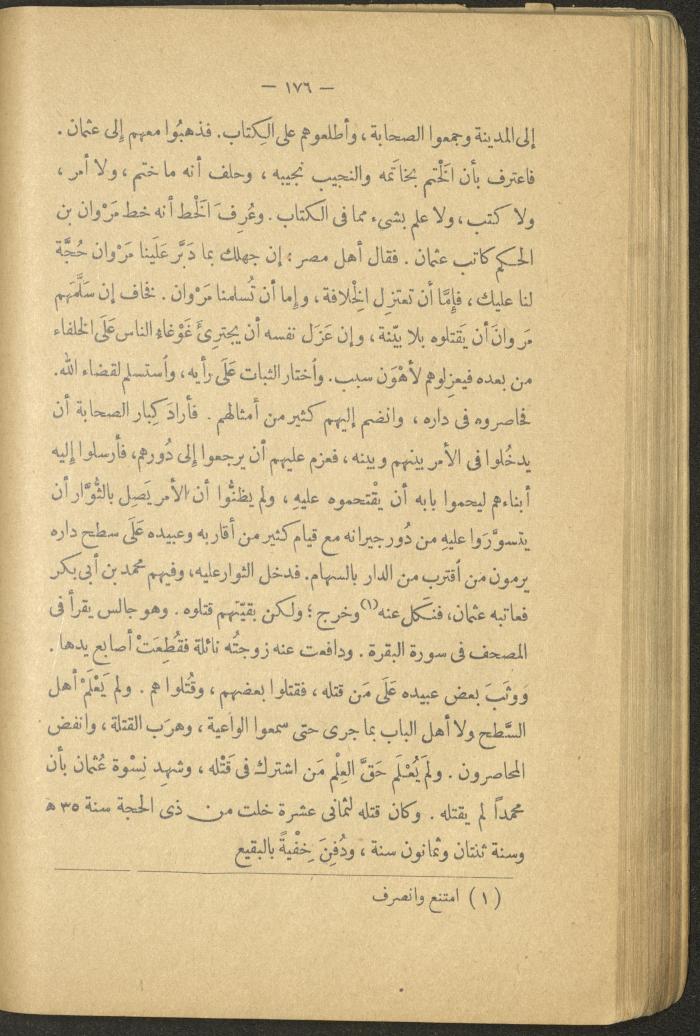 — ١٧٦ —
إلى المدينة وجمعوا الصحابة ، وأطلعوهم على الكِتاب. فذهبُوا معهم إلى عثمان .
فاعترف بأن الخَتم بخاتَمه والنجيب نجيبه ، وحلف أنه ما ختم ، ولا أمر ،
ولا كتب ، ولا علم بشىء مما فى الكتاب . وعُرِفَ الخَط أنه خط مَرْوان بن
الحكم كاتب عثمان . فقال أهل مصر : إن جهلك بما دَبَّر عَلَينا مَرْوان حُجَّة
لنا عليك ، فإمَّا أن تعتزل الخِلافة ، وإما أن تُسلمنا مَرْوان . فخاف إن سَلَّمَهم
مَروانَ أن يَقتلوه بلا بيّنة ، وإن عَزَل نفسه أن يجترِئَ غَوْغاء الناس عَلَى الخلفاء
من بعده فيعزِلوهم لأهْوَن سبب. وأختار الثبات عَلَى رأيه، وأستسلم لقضاء الله.
فحاصروه فى داره ، وانضم إليهم كثير من أمثالهم . فأرادَ كِبار الصحابة أن
يدخُلوا فى الأمر بينهم وبينه ، فعزم عليهم أن يرجعوا إلى دُورهم، فأرسلوا إليه
أبناءهم ليحموا بابه أن يقْتحموه عليهِ ، ولم يظنُّوا أن الأمر يَصِل بالثُّوَّار أن
يتسوَّرَوا عليهِ من دُور جيرانه مع قيام كثير من أقاربه وعبيده عَلَى سطح داره
يرمون مَن أقترب من الدار بالسهام. فدخل الثوار عليه، وفيهم محمد بن أبى بكر
فعاتبه عثمان، فنكل عنه(١) وخرج ؛ ولكن بقيّتهم قتلوه . وهو جالس يقرأ فى
المصحف فى سورة البقرة . ودافعت عنه زوجتُه نائلة فقُطِعَتْ أصابع يدها .
ووثَبَ بعض عبيده عَلَى مَن قتله ، فقتلوا بعضهم ، وقُتلوا هم . ولم يَعْلَمْ أهل
السَّطح ولا أهل الباب بما جرى حتى سمعوا الواعية ، وهرَب القتلة ، وانفض
المحاصرون . ولَم يُعْلَم حَقَّ العِلْم مَن اشترك فى قَتْله ، وشهِد نِسْوة عُثمان بأن
محمداً لم يقتله . وكان قتله لثمانى عشرة خلت من ذى الحجة سنة ٣٥ هـ
وسنة ثنتان وثمانون سنة ، ودُفِنَ خِفْيةً بالبقيع
(١) امتنع وانصرف